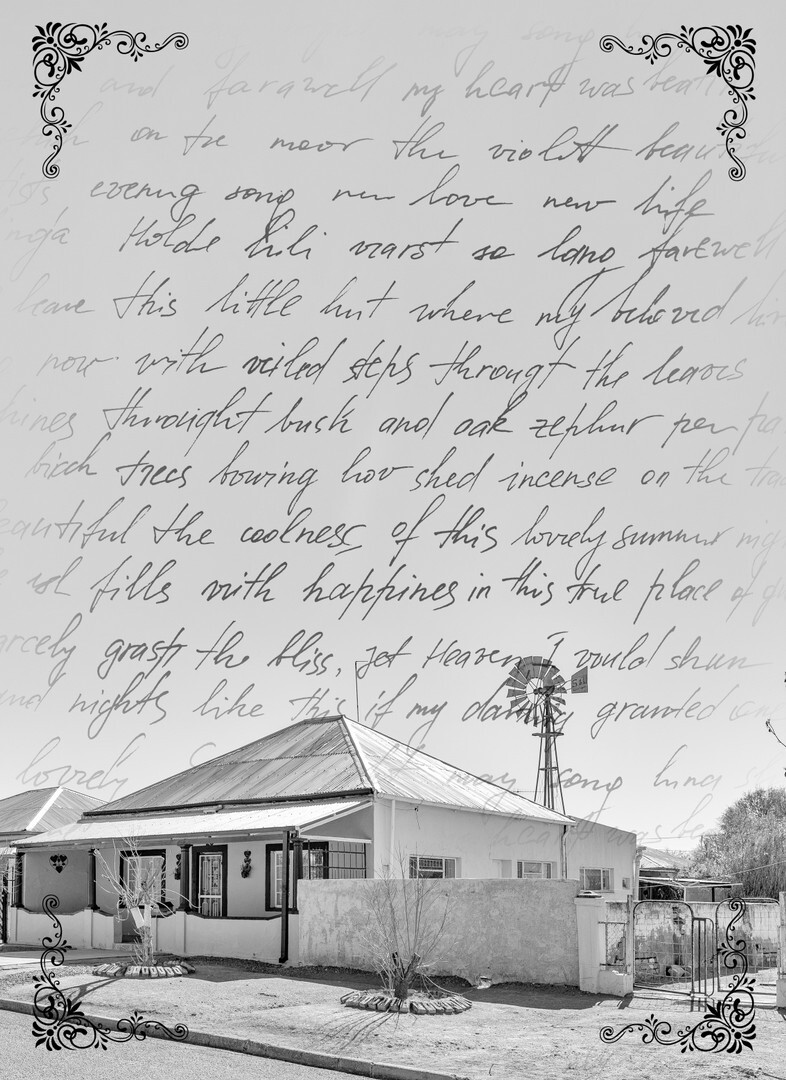 may song
and farawell my heart was beatin
on the moor the violett beautiful
evening song new love new life
Holde Lili warst so lang farewell
leave this little hut where my beloved liv
now with veiled steps througt the leaves
hines throught bush and oak zephur per pa
birch trees bowing low shed incense on the tra
eautiful the coolness of this lovely summer nig
fills with happines in this true place of qu
arcely grasp the bliss, jet Heaven I would shun
and nights like this if my darling granted one
lovely may song
heart was be